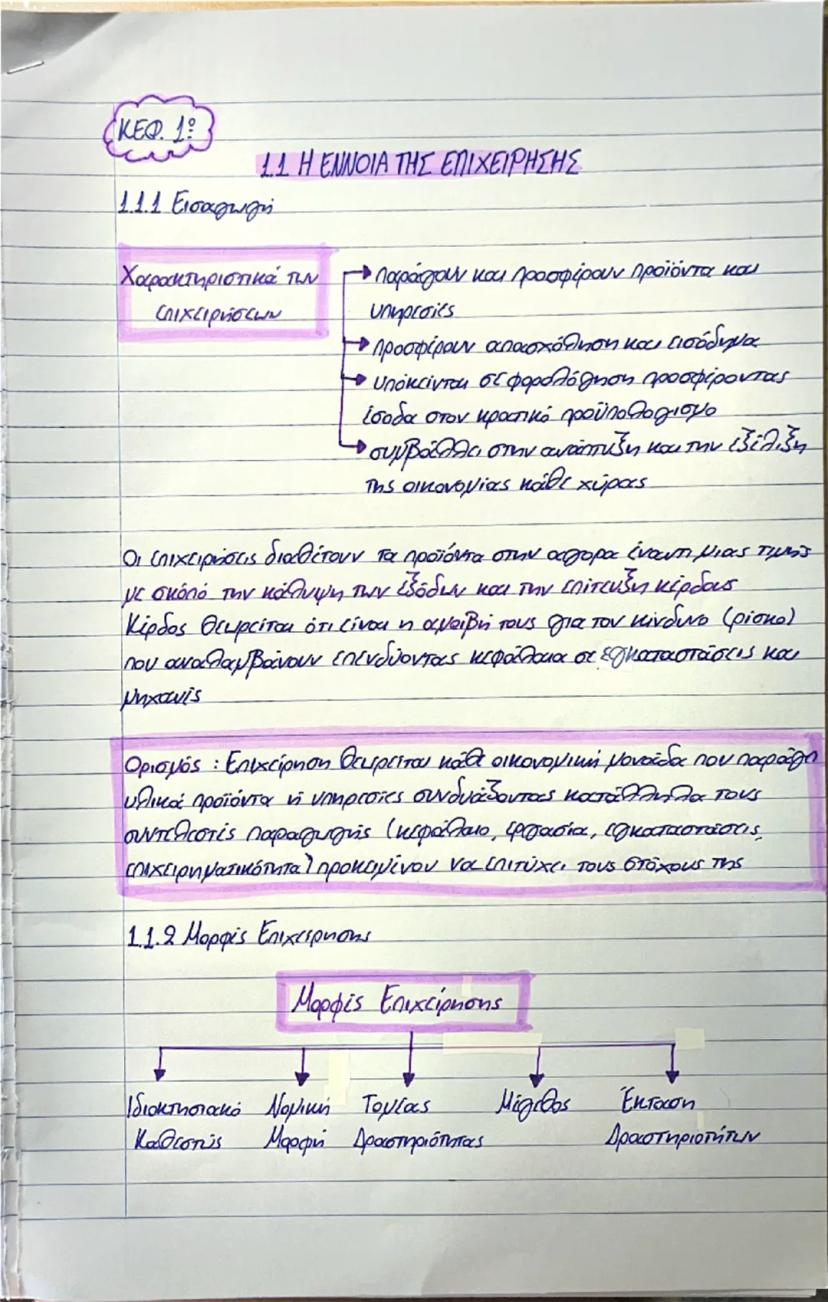 ΚΕΦ. 1º
1.1 Η ΕΝΝΟΙΑ ΤΗΣ ΕΠΙΧΕΙΡΗΣΗΣ
1.1.1 Εισαγωγή
Χαρακτηριστικά των
επιχειρήσεων
παράγουν και προσφέρουν προϊόντα και
υπηρεσίες
προσφέρουν απασχόληση και εισόδημα
υπόκεινται σε φορολόγηση προσφέροντας
έσοδα στον κρατικό προϋπολογισμο
συμβάλλει στην ανάπτυξη και την εξέλιξη
της οικονομίας κάθε χώρας
Οι επιχειρήσεις διαθέτουν τα προϊόντα στην αγορα έναντι μιας τιμής
με σκοπό την κάλυψη των εξόδων και την επίτευξη κέρδους
Κέρδος θεωρείται ότι είναι η αμοιβή τους για τον κίνδυνο (ρίσκο)
που αναλαμβάνουν επενδύοντας κεφάλαια σε εγκαταστάσεις και
μηχανές
Ορισμός : Επιχείρηση θεωρείται κάθε οικονομική μονάδα που παράγει
υλικά προϊόντα ή υπηρεσίες συνδυάζοντας κατάλληλα τους
συντελεστές παραγωγής (κεφάλαιο, εργασία, εγκαταστάσεις,
επιχειρηματικότητα) προκειμένου να επιτύχει τους στόχους της
1.1.2 Μορφές Επιχείρησης
Μορφές Επιχείρησης
Ιδιοκτησιακό Νομική Τομέας Μέγεθος Έκταση
Καθεστώς Μορφή Δραστηριότητας Δραστηριοτήτων